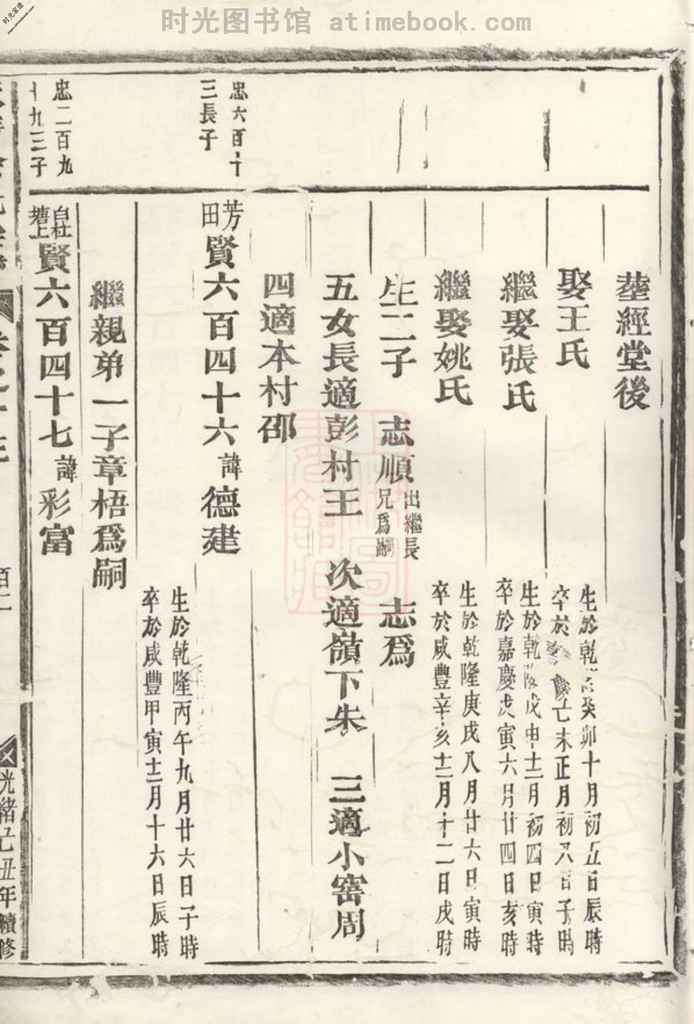 时光图书馆 atimebook.com
塟經堂後
娶王氏
生於乾隆癸卯十月初五日辰時
卒於 乙未正月初八日子時
繼娶張氏
生於乾隆戊申十二月初四日寅時
卒於嘉慶戊寅六月廿四日亥時
繼娶姚氏
生於乾隆庚戌八月廿六日寅時
卒於咸豐辛亥十二月十二日戌時
生二子 志順 出繼長兄爲嗣 志爲
五女長適彭村王 次適嶺下朱 三適小窰周
四適本村邵
忠六百十
三長子
芳田 賢六百四十六 諱 德建
生於乾隆丙午九月廿六日子時
卒於咸豐甲寅十二月十六日辰時
繼親弟一子章梧爲嗣
忠二百九
十九三子
賢六百四十七 諱 彩富
百二
光緒乙丑年續修